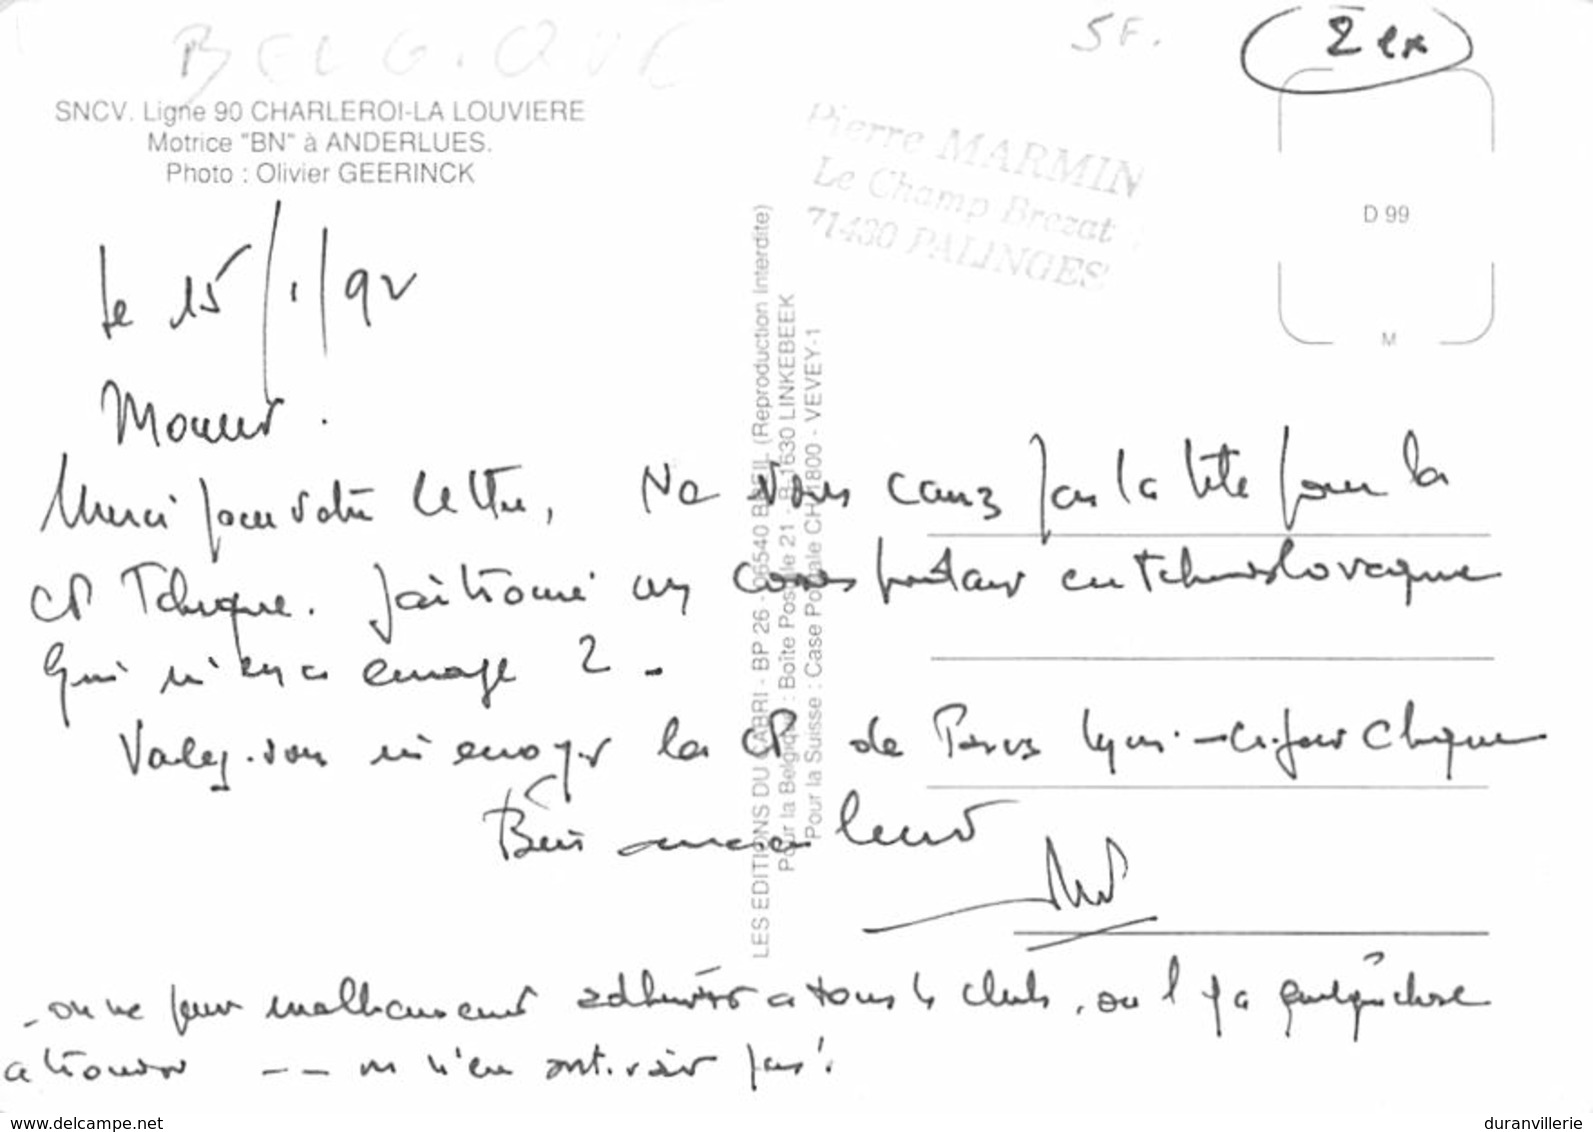 BELGIQUE
5F.
2 ex
SNCV. Ligne 90 CHARLEROI-LA LOUVIERE
Motrice "BN" à ANDERLUES.
Photo : Olivier GEERINCK
Pierre MARMIN
Le Champ Brezat
71430 PALINGES
D 99
M
LES EDITIONS DU CABRI - BP 26 - 06540 BREIL (Reproduction Interdite)
Pour la Belgique : Boîte Postale 21 - B 1630 LINKEBEEK
Pour la Suisse : Case Postale CH 1800 - VEVEY-1
le 15/1/92
Monsieur.
Merci pour votre lettre, Ne vous cassez pas la tête pour la
CP Tchèque. J'ai trouvé un correspondant en Tchécoslovaquie
qui m'en a envoyé 2.
Voulez-vous m'envoyer la CP de Paris Lyon - ci-joint chèque
Bien amicalement
- on ne peut malheureusement adhérer à tous les clubs, où il y a quelque chose
à trouver -- on n'en sortirait pas !
www.delcampe.net
duranvillerie